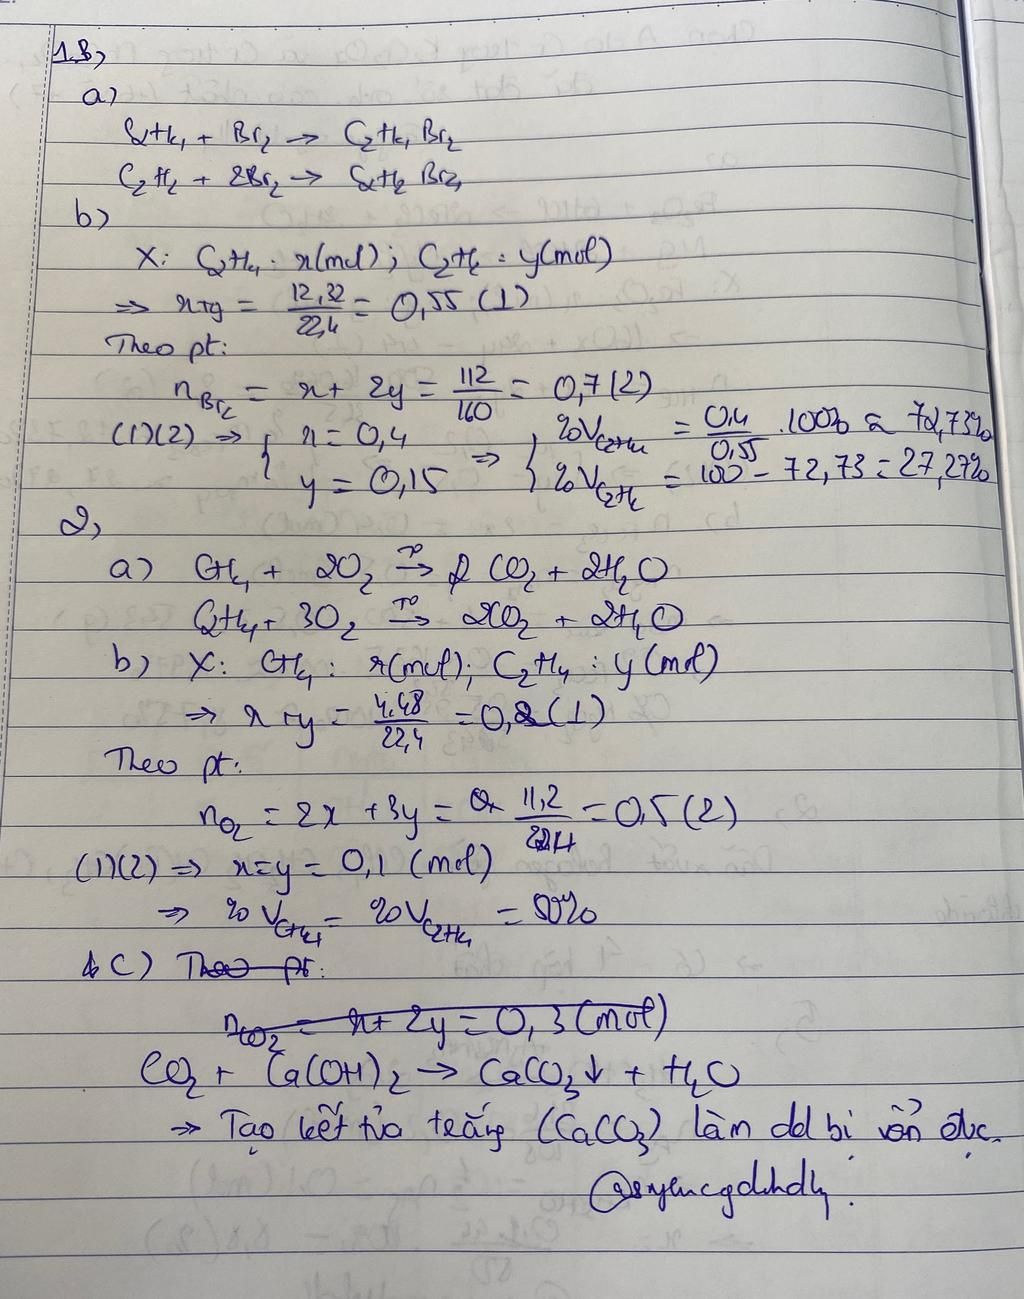 1.B,
a)
C₂H₄ + Br₂ → C₂H₄Br₂
C₂H₂ + 2Br₂ → C₂H₂Br₄
b)
X: C₂H₄: x(mol); C₂H₂: y(mol)
⇒ x+y = 12,32/22,4 = 0,55 (1)
Theo pt:
n_Br₂ = x + 2y = 112/160 = 0,7 (2)
(1)(2) ⇒ { x = 0,4 ⇒ { %V_C₂H₄ = 0,4/0,55 .100% ≈ 72,73%
y = 0,15 %V_C₂H₂ = 100 - 72,73 = 27,27%
2,
a) CH₄ + 2O₂ →(T°) CO₂ + 2H₂O
C₂H₄ + 3O₂ →(T°) 2CO₂ + 2H₂O
b) X: CH₄: x(mol); C₂H₄: y(mol)
⇒ x + y = 4,48/22,4 = 0,2 (1)
Theo pt:
n_O₂ = 2x + 3y = 11,2/22,4 = 0,5 (2)
(1)(2) ⇒ x=y = 0,1 (mol)
⇒ %V_CH₄ = %V_C₂H₄ = 50%
c) Theo pt:
n_CO₂ = x + 2y = 0,3 (mol)
CO₂ + Ca(OH)₂ → CaCO₃↓ + H₂O
⇒ Tạo kết tủa trắng (CaCO₃) làm dd bị vẩn đục.